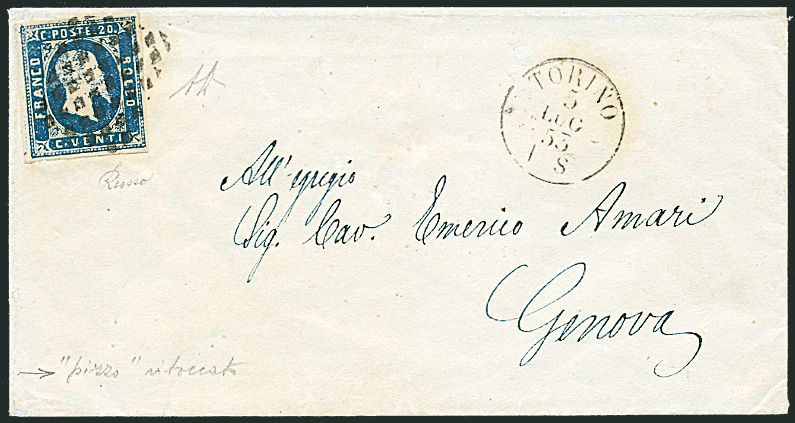 C. POSTE. 20.
FRANCO
BOLLO
C. VENTI
TORINO
5
LUG
53
8
Russo
All' egregio
Sig. Cav. Emerico Amari
Genova
"pizzo" ritoccato